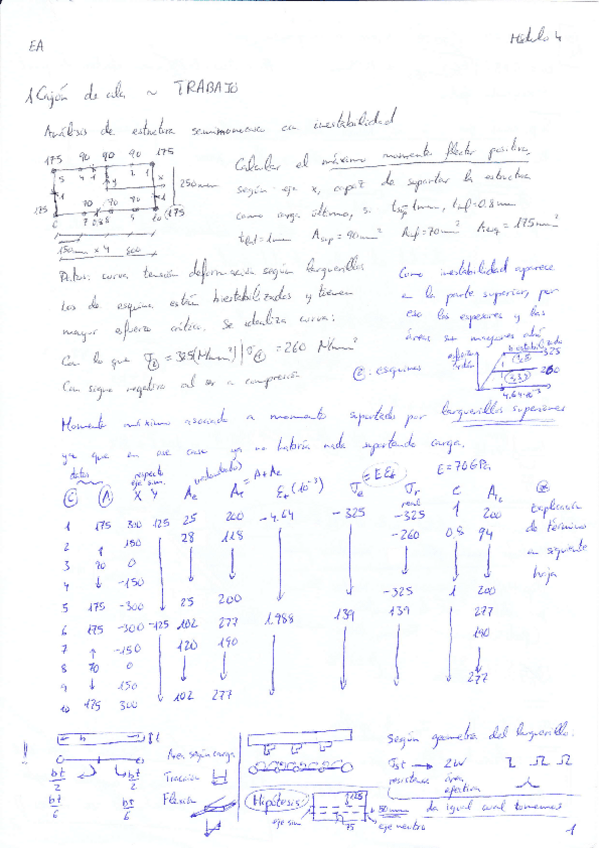 EA
Módulo 4
1 Cajón de cola ~ TRABAJO
Análisis de estructura semimonocasco con inestabilidad
175 90 90 90 175
5 4 3 2 1 x
y
250mm
175 70 70 70 175
6 7 8 9 10
150mm x 4 600
Calcular el máximo momento flector positivo
según eje x, capaz de soportar la estructura
como carga última, si tsup 1mm, tinf=0.8mm
tlat=1mm Asup=90mm² Ainf=70mm² Aesq=175mm²
Datos: curva tensión deformación según larguerillos
Los de esquina están biestabilizados y tienen
mayor esfuerzo crítico. Se idealiza curva:
Con lo que σc = 325 (N/mm²) | σc = 260 N/mm²
Con signo negativo al ser a compresión
C: esquinas
Como inestabilidad aparece
en la parte superior, por
eso los espesores y las
áreas son mayores ahí
325
260
4.64·10⁻³
Momento máximo asociado a momento soportado por larguerillos superiores
ya que en ese caso ya no habría nada soportando carga.
datos respecto eje sim. = A+Ae = EEt E=70GPa
C A X Y Ae At Et(10⁻³) σe σr real C Ac
1 175 300 125 25 200 -4.64 -325 -325 1 200
2 150 28 118 -260 0.8 94
3 90 0
4 -150
5 175 -300 25 200 -325 1 200
6 175 -300 -125 102 277 1.988 139 139 277
7 -150 120 190 190
8 70 0
9 150
10 175 300 102 277 277
Explicación
de términos
en siguiente
hoja
b t
bt/2 bt/2
bt/6 bt/6
Área según carga
Tracción
Flexión
Hipótesis:
eje sim
125
75
50mm
eje neutro
Según geometría del larguerillo:
σst → 2W
área
efectiva
da igual cual tomemos
1